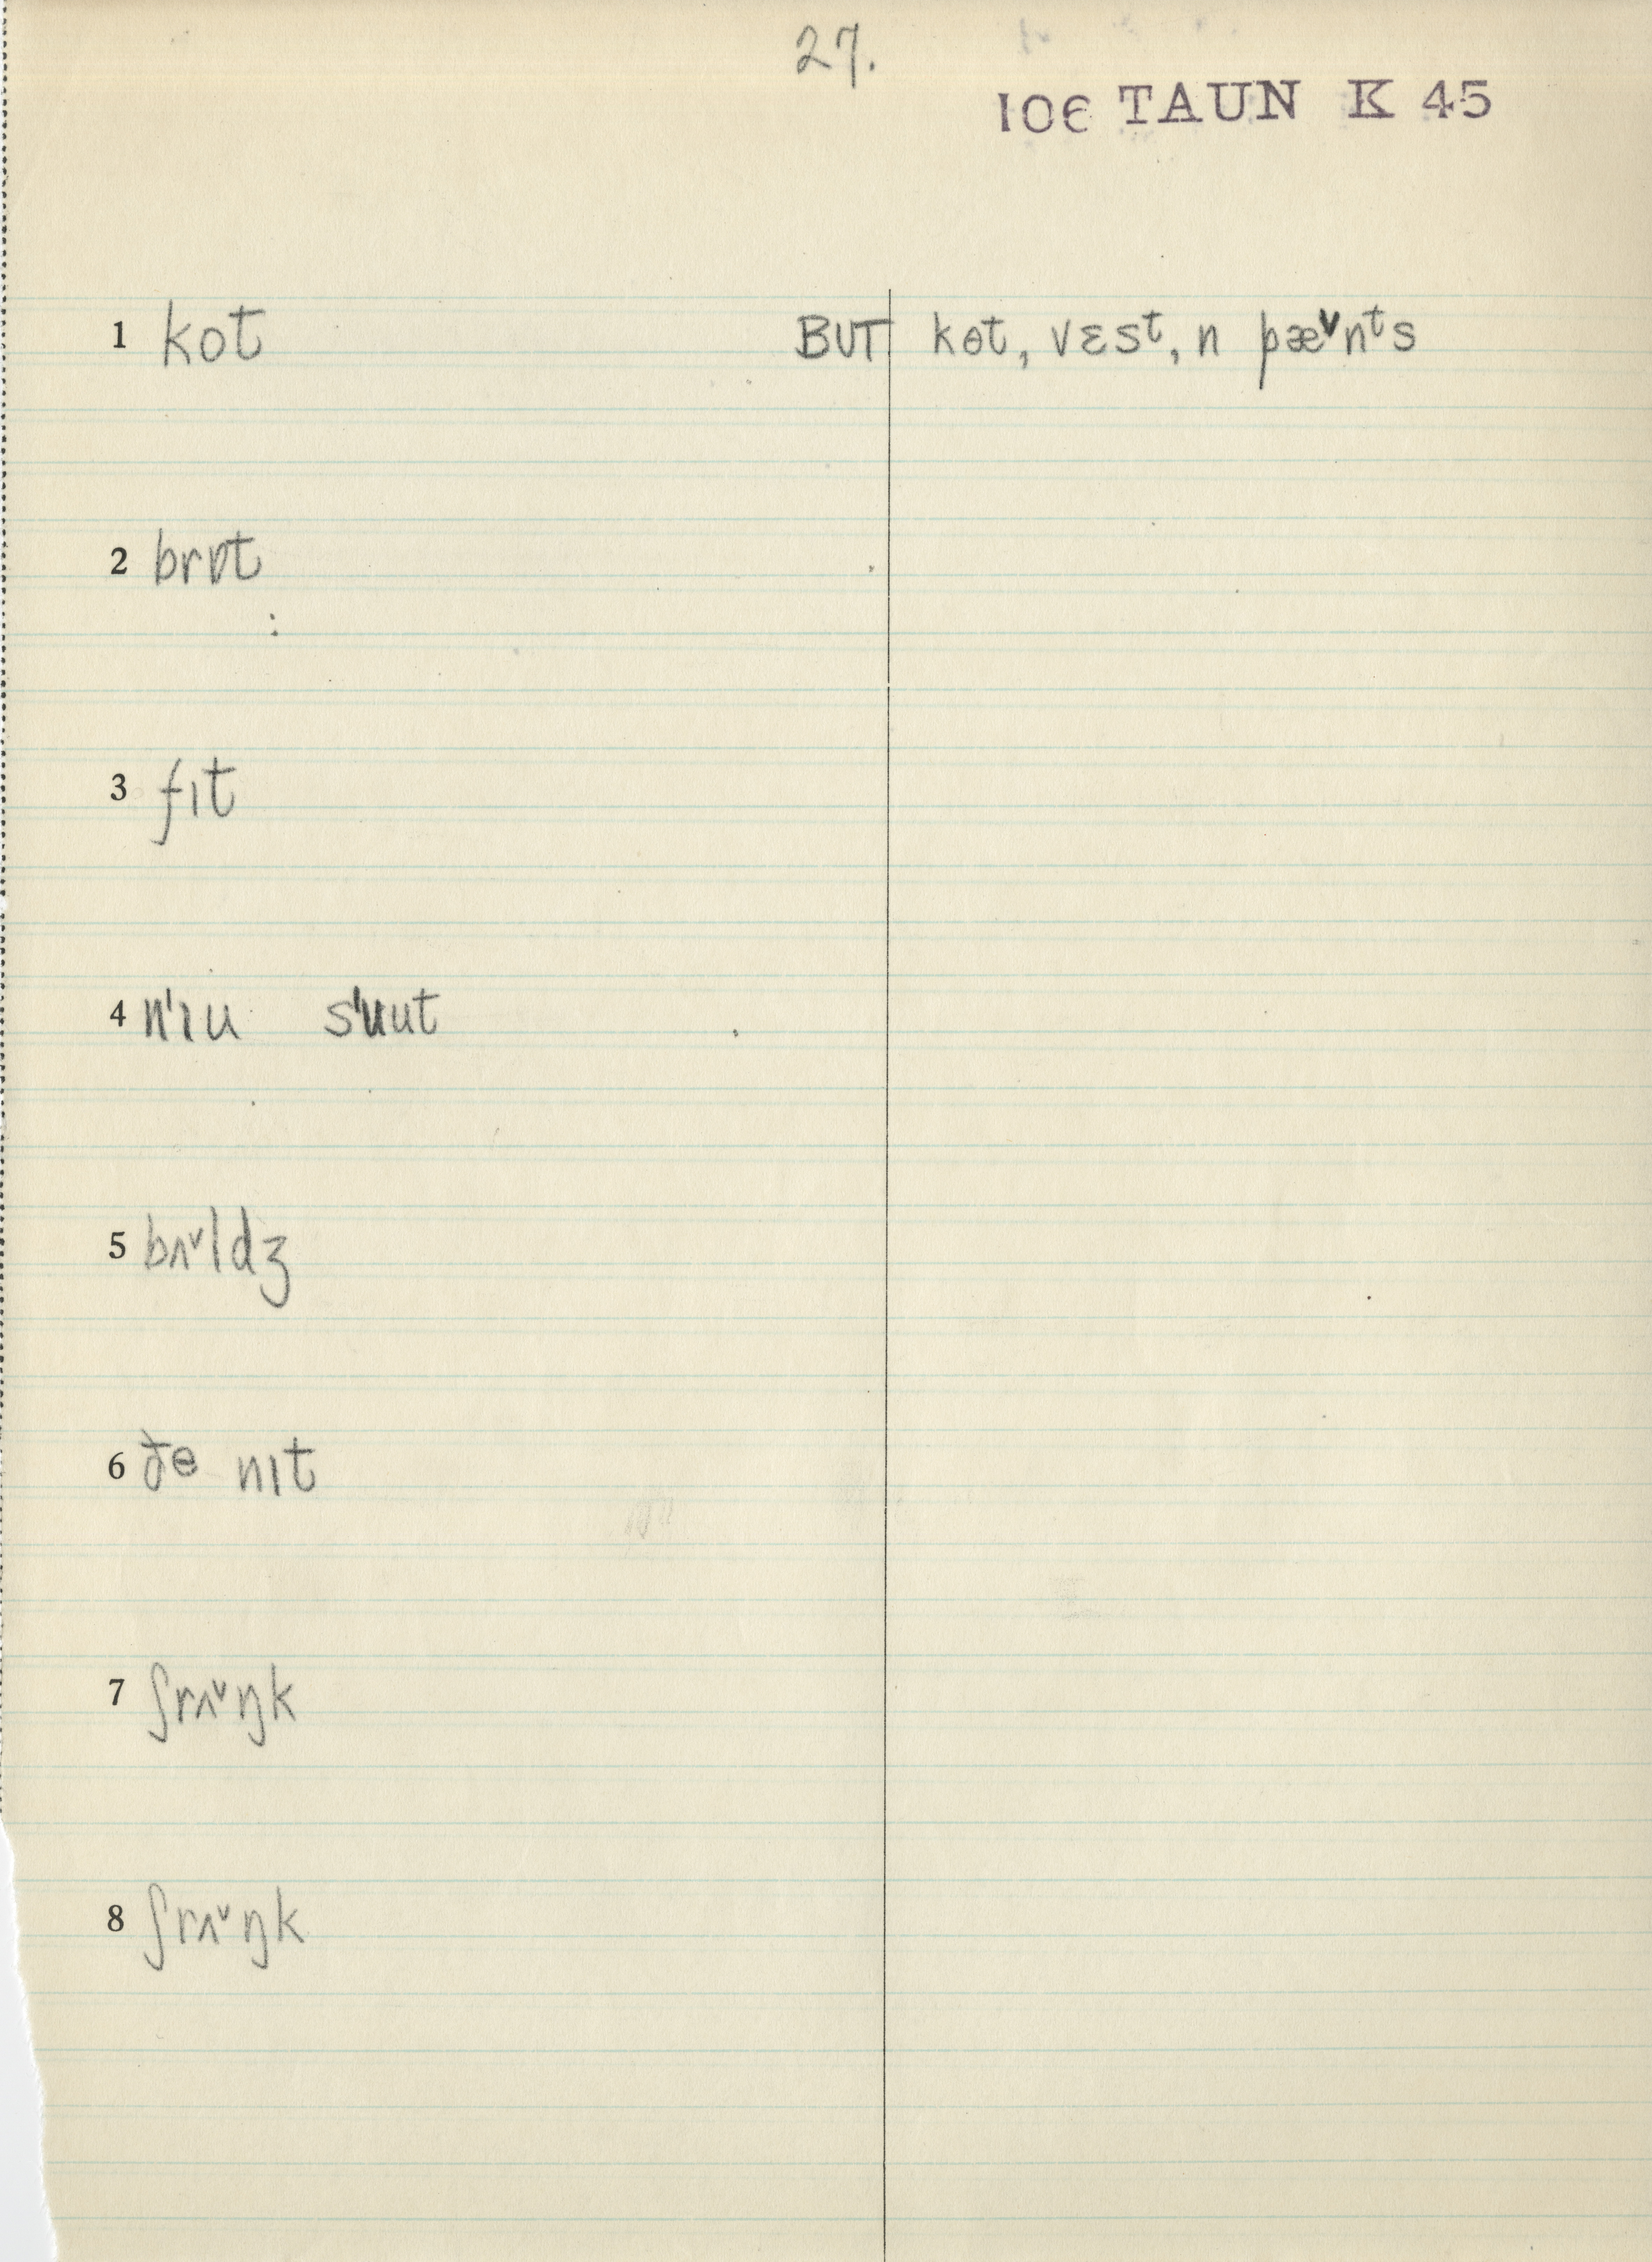 27.
106 TAUN K 45
1 kot BUT kɵt, vɛsᵗ, n pæˇnᵗs
2 brɒt
3 fɪt
4 n'ɪu s'ʉut
5 bʌˇldʒ
6 ðɵ nɪt
7 ʃrʌˇŋk
8 ʃrʌˇŋk